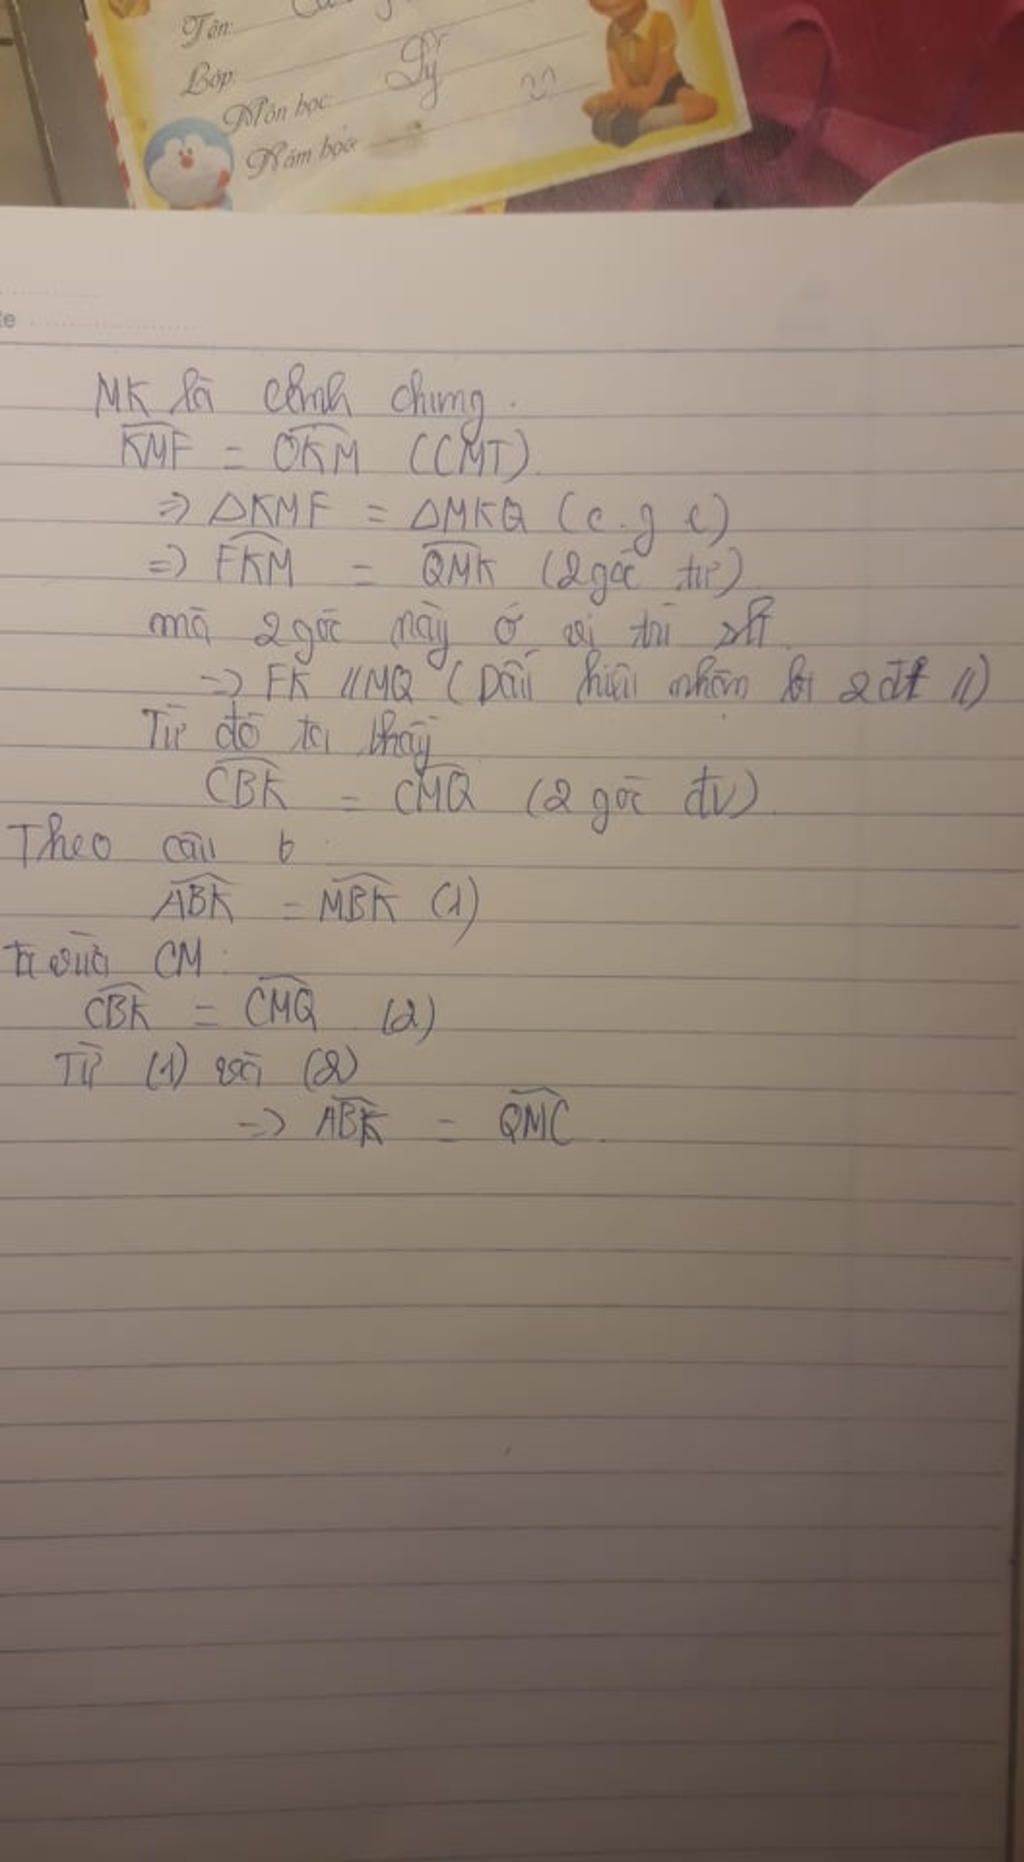 Tên:
Lớp:
Môn học: Lý
Năm học:
MK là cạnh chung.
KMF = QKM (CMT).
=> △KMF = △MKQ (c.g.c)
=> FKM = QMK (2 góc tư)
mà 2 góc này ở vị trí slt
=> FK // MQ (Dấu hiệu nhận bt 2 đt //)
Từ đó ta thấy
CBK = CMQ (2 góc đv)
Theo câu b:
ABK = MBK (1)
Ta vừa CM:
CBK = CMQ (2)
Từ (1) và (2)
=> ABK = QMC.